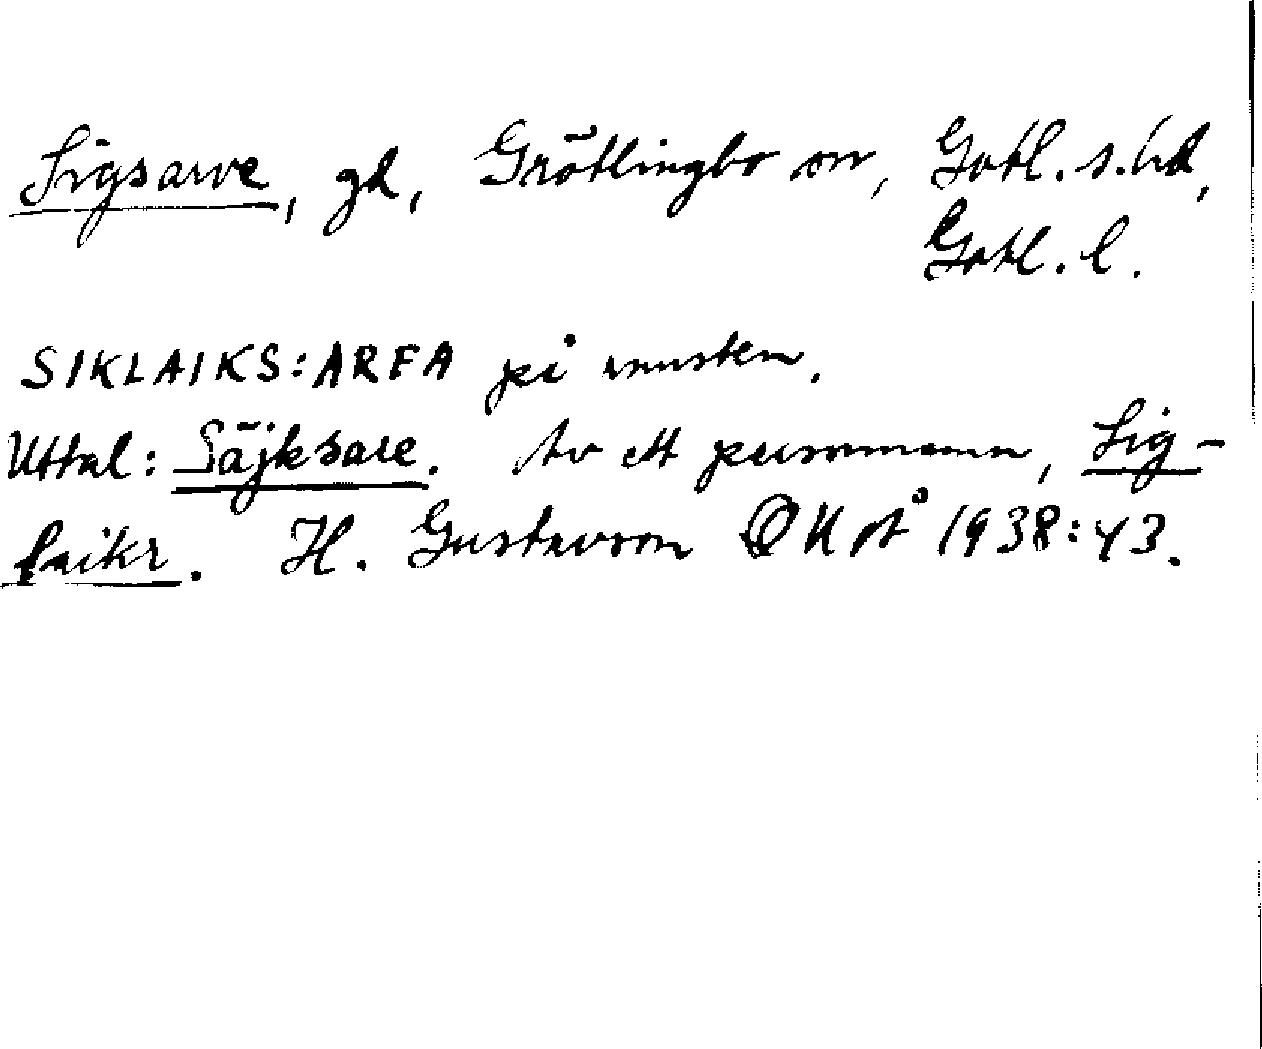 Sigsarve, gd, Grötlingbo sn, Gotl. s. hd,
Gotl. l.
SIKLAIKS:ARFA på runsten.
Uttal: Säjksare. Av ett personnamn, Sig-
laikr. H. Gustavson 1938:43.